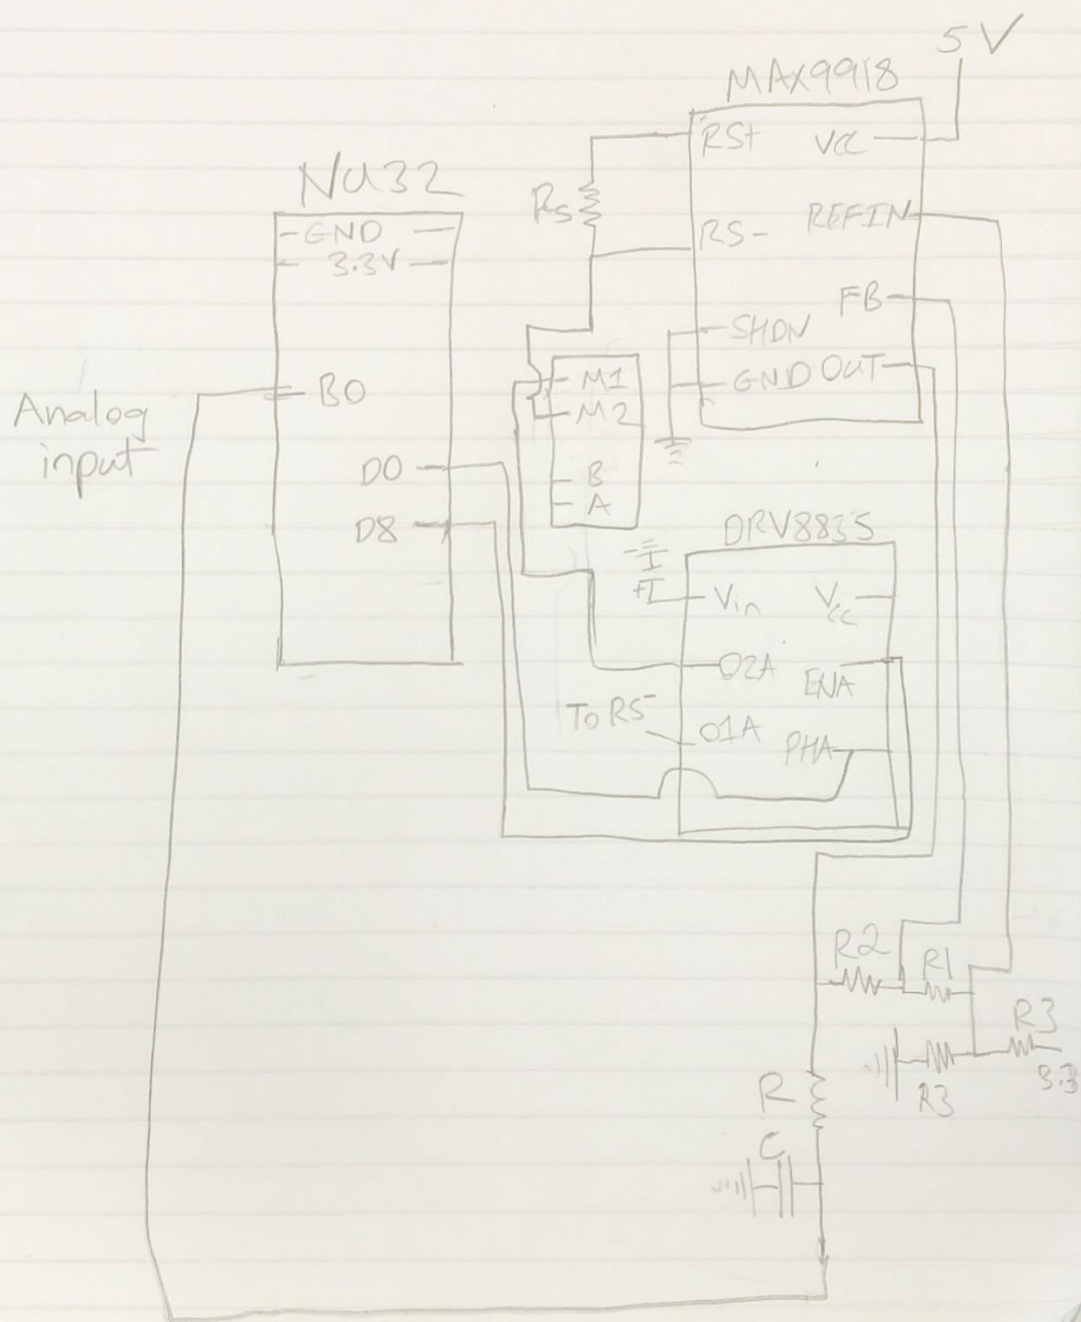 5V
MAX9918
RS+
VCC
Rs
RS-
REFIN
FB
SHDN
GND
OUT
NU32
GND
3.3V
B0
Analog
input
D0
D8
M1
M2
B
A
DRV8835
+
-
Vin
Vcc
O2A
ENA
To RS-
O1A
PHA
R2
R1
R3
R3
3.3
R
C